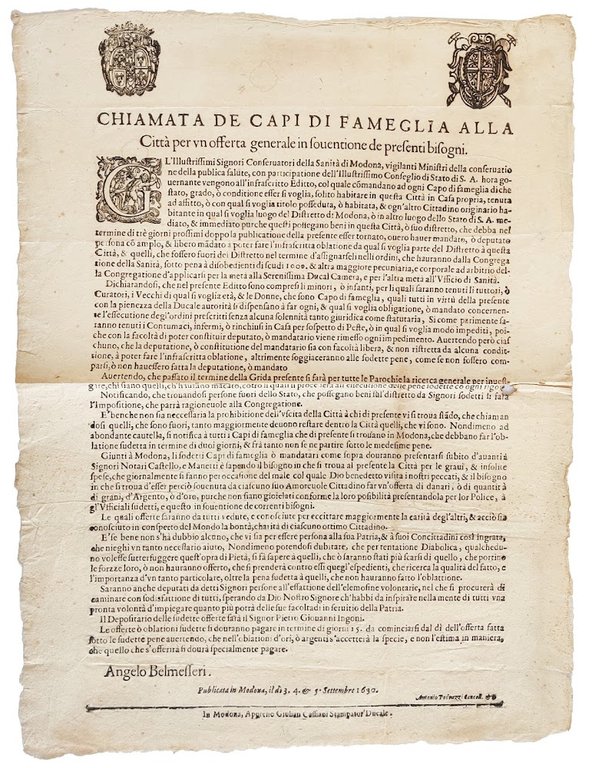 CHIAMATA DE CAPI DI FAMEGLIA ALLA
Città per vn offerta generale in souentione de presenti bisogni.
GL'Illustrissimi Signori Conseruatori della Sanità di Modona, vigilanti Ministri della conseruatio
ne della publica salute, con participatione dell'Illustrissimo Conseglio di Stato di S. A. hora go-
uernante vengono all'infrascritto Editto, col quale cōmandano ad ogni Capo di fameglia di che
stato, grado, ò conditione esser si voglia, solito habitare in questa Città in Casa propria, tenuta
ad affitto, ò con qual si voglia titolo posseduta, ò habitata, & ogn'altro Cittadino originario ha-
bitante in qual si voglia luogo del Distretto di Modona, ò in altro luogo dello Stato di S. A. me-
diato, & immediato purche questi possegano beni in questa Città, ò suo distretto, che debba nel
termine di trè giorni prossimi doppo la publicatione della presente esser tornato, ouero hauer mandato, ò deputato
persona cō amplo, & libero mādato a poter fare l'infrascritta oblatione da qual si voglia parte del Distretto à questa
Città, & quelli, che fossero fuori del Distretto nel termine d'assignarseli nelli ordini, che hauranno dalla Congrega
tione della Sanità, sotto pena à disobedienti di scudi 1000. & altra maggiore pecuniaria, e corporale ad arbitrio del-
la Congregatione d'applicarsi per la metà alla Serenissima Ducal Camera, e per l'altra metà all'Vfficio di Sanità.
Dichiarandosi, che nel presente Editto sono compresi li minori, ò infanti, per li quali saranno tenuti li tuttori, ò
Curatori, i Vecchi di qual si voglia età, & le Donne, che sono Capo di fameglia, quali tutti in virtù della presente
con la pienezza della Ducale autorità si dispensano à far ogni, & qual si voglia obligatione, ò mandato concernen-
te l'essecutione degl'ordini prescritti senza alcuna solennità tanto giuridica come statutaria, Si come perimente sa-
ranno tenuti i Contumaci, infermi, ò rinchiusi in Casa per sospetto di Peste, ò in qual si voglia modo impediti, poi-
che con la facoltà di poter constituir deputato, ò mandatario viene rimesso ogni impedimento. Auertendo però cias-
chuno, che la deputatione, ò constitutione del mandatario sia con facoltà libera, & non ristretta da alcuna condit-
tione, à poter fare l'infrascritta oblatione, altrimente soggiaceranno alle sodette pene, come se non fossero com-
parsi, ò non hauessero fatta la deputatione, ò mandato
Auertendo, che passato il termine della Grida presente si farà per tutte le Parochie la ricerca generale per inuesti-
gare, chi siano quelli, ch'hauranno mācato, contro li quali si procederà all'essecutione delle pene sodette cō ogni rigore
Notificando, che trouandosi persone fuori dello Stato, che possegano beni sul distretto da Signori sodetti li sarà
l'impositione, che parrà ragioneuole alla Congregatione.
E' benche non sia necessaria la prohibitione dell'vscita della Città à chi di presente vi si troua stādo, che chiaman
dosi quelli, che sono fuori, tanto maggiormente deuono restare dentro la Città quelli, che vi sono. Nondimeno ad
abondante cauttella, si notifica à tutti i Capi di fameglia che di presente si trouano in Modona, che debbano far l'obla-
tione sudetta in termine di duoi giorni, & frà tanto non se ne partire sotto le medesime pene.
Gionti à Modona, li sodetti Capi di fameglia ò mandatari come sopra douranno presentarsi subito d'auanti à
Signori Notari Castello, e Manetti è sapendo il bisogno in che si troua al presente la Città per le graui, & insolite
spese, che giornalmente si fanno per occasione del male col quale Dio benedetto visita i nostri peccati, & il bisogno
in che si troua d'esser perciò souenuta da ciascuno suo Amoreuole Cittadino far vn'offerta di danari, ò di quantità
di grani, d'Argento, ò d'oro, purche non siano gioielati conforme la loro possibilità presentandola per lor Police, à
gl'Vfficiali sudetti, e questo in souentione de correnti bisogni.
Le quali offerte saranno da tutti vedute, e conosciute per eccittare maggiormente la carità degl'altri, & acciò sia
conosciuto in conspetto del Mondo la bontà, charità di ciascuno ottimo Cittadino.
E' se bene non s'hà dubbio alcuno, che vi sia per essere persona alla sua Patria, & à suoi Concittadini così ingrata,
che nieghi vn tanto necessario aiuto, Nondimeno potendosi dubitare, che per tentatione Diabolica, qualchedu-
no volesse sutterfuggere quest'opra di Pietà, si fà sapere à quelli, che ò saranno stati più scarsi di quello, che portino
le forze loro, ò non hauranno offerto, che si prenderà contro essi quegl'espedienti, che ricerca la qualità del fatto, e
l'importanza d'vn tanto particolare, oltre la pena sudetta à quelli, che non hauranno fatto l'oblattione.
Saranno anche deputati da detti Signori persone all'esattione dell'elemosine volontarie, nel che si procurerà di
caminare con sodisfatione di tutti, sperando da Dio Nostro Signore ch'habbi da inspirare nella mente di tutti vna
pronta volontà d'impiegare quanto più potrà delle sue facoltadi in seruitio della Patria.
Il Depositario delle sudette offerte sarà il Signor Pietro Giouanni Ingoni.
Le offerte ò oblationi sudette si douranno pagare in termine di giorni 15. da cominciarsi dal dì dell'offerta fatta
sotto le sudette pene auertendo, che nell'obiation d'ori, ò argenti s'accetterà la specie, e non l'estima in maniera,
che quello che s'offerirà si dourà specialmente pagare.
Angelo Belmesseri.
Publicata in Modona, il dì 3. 4. & 5. Settembre 1630.
In Modona, Appresso Giulian Cassiani Stampator Ducale.